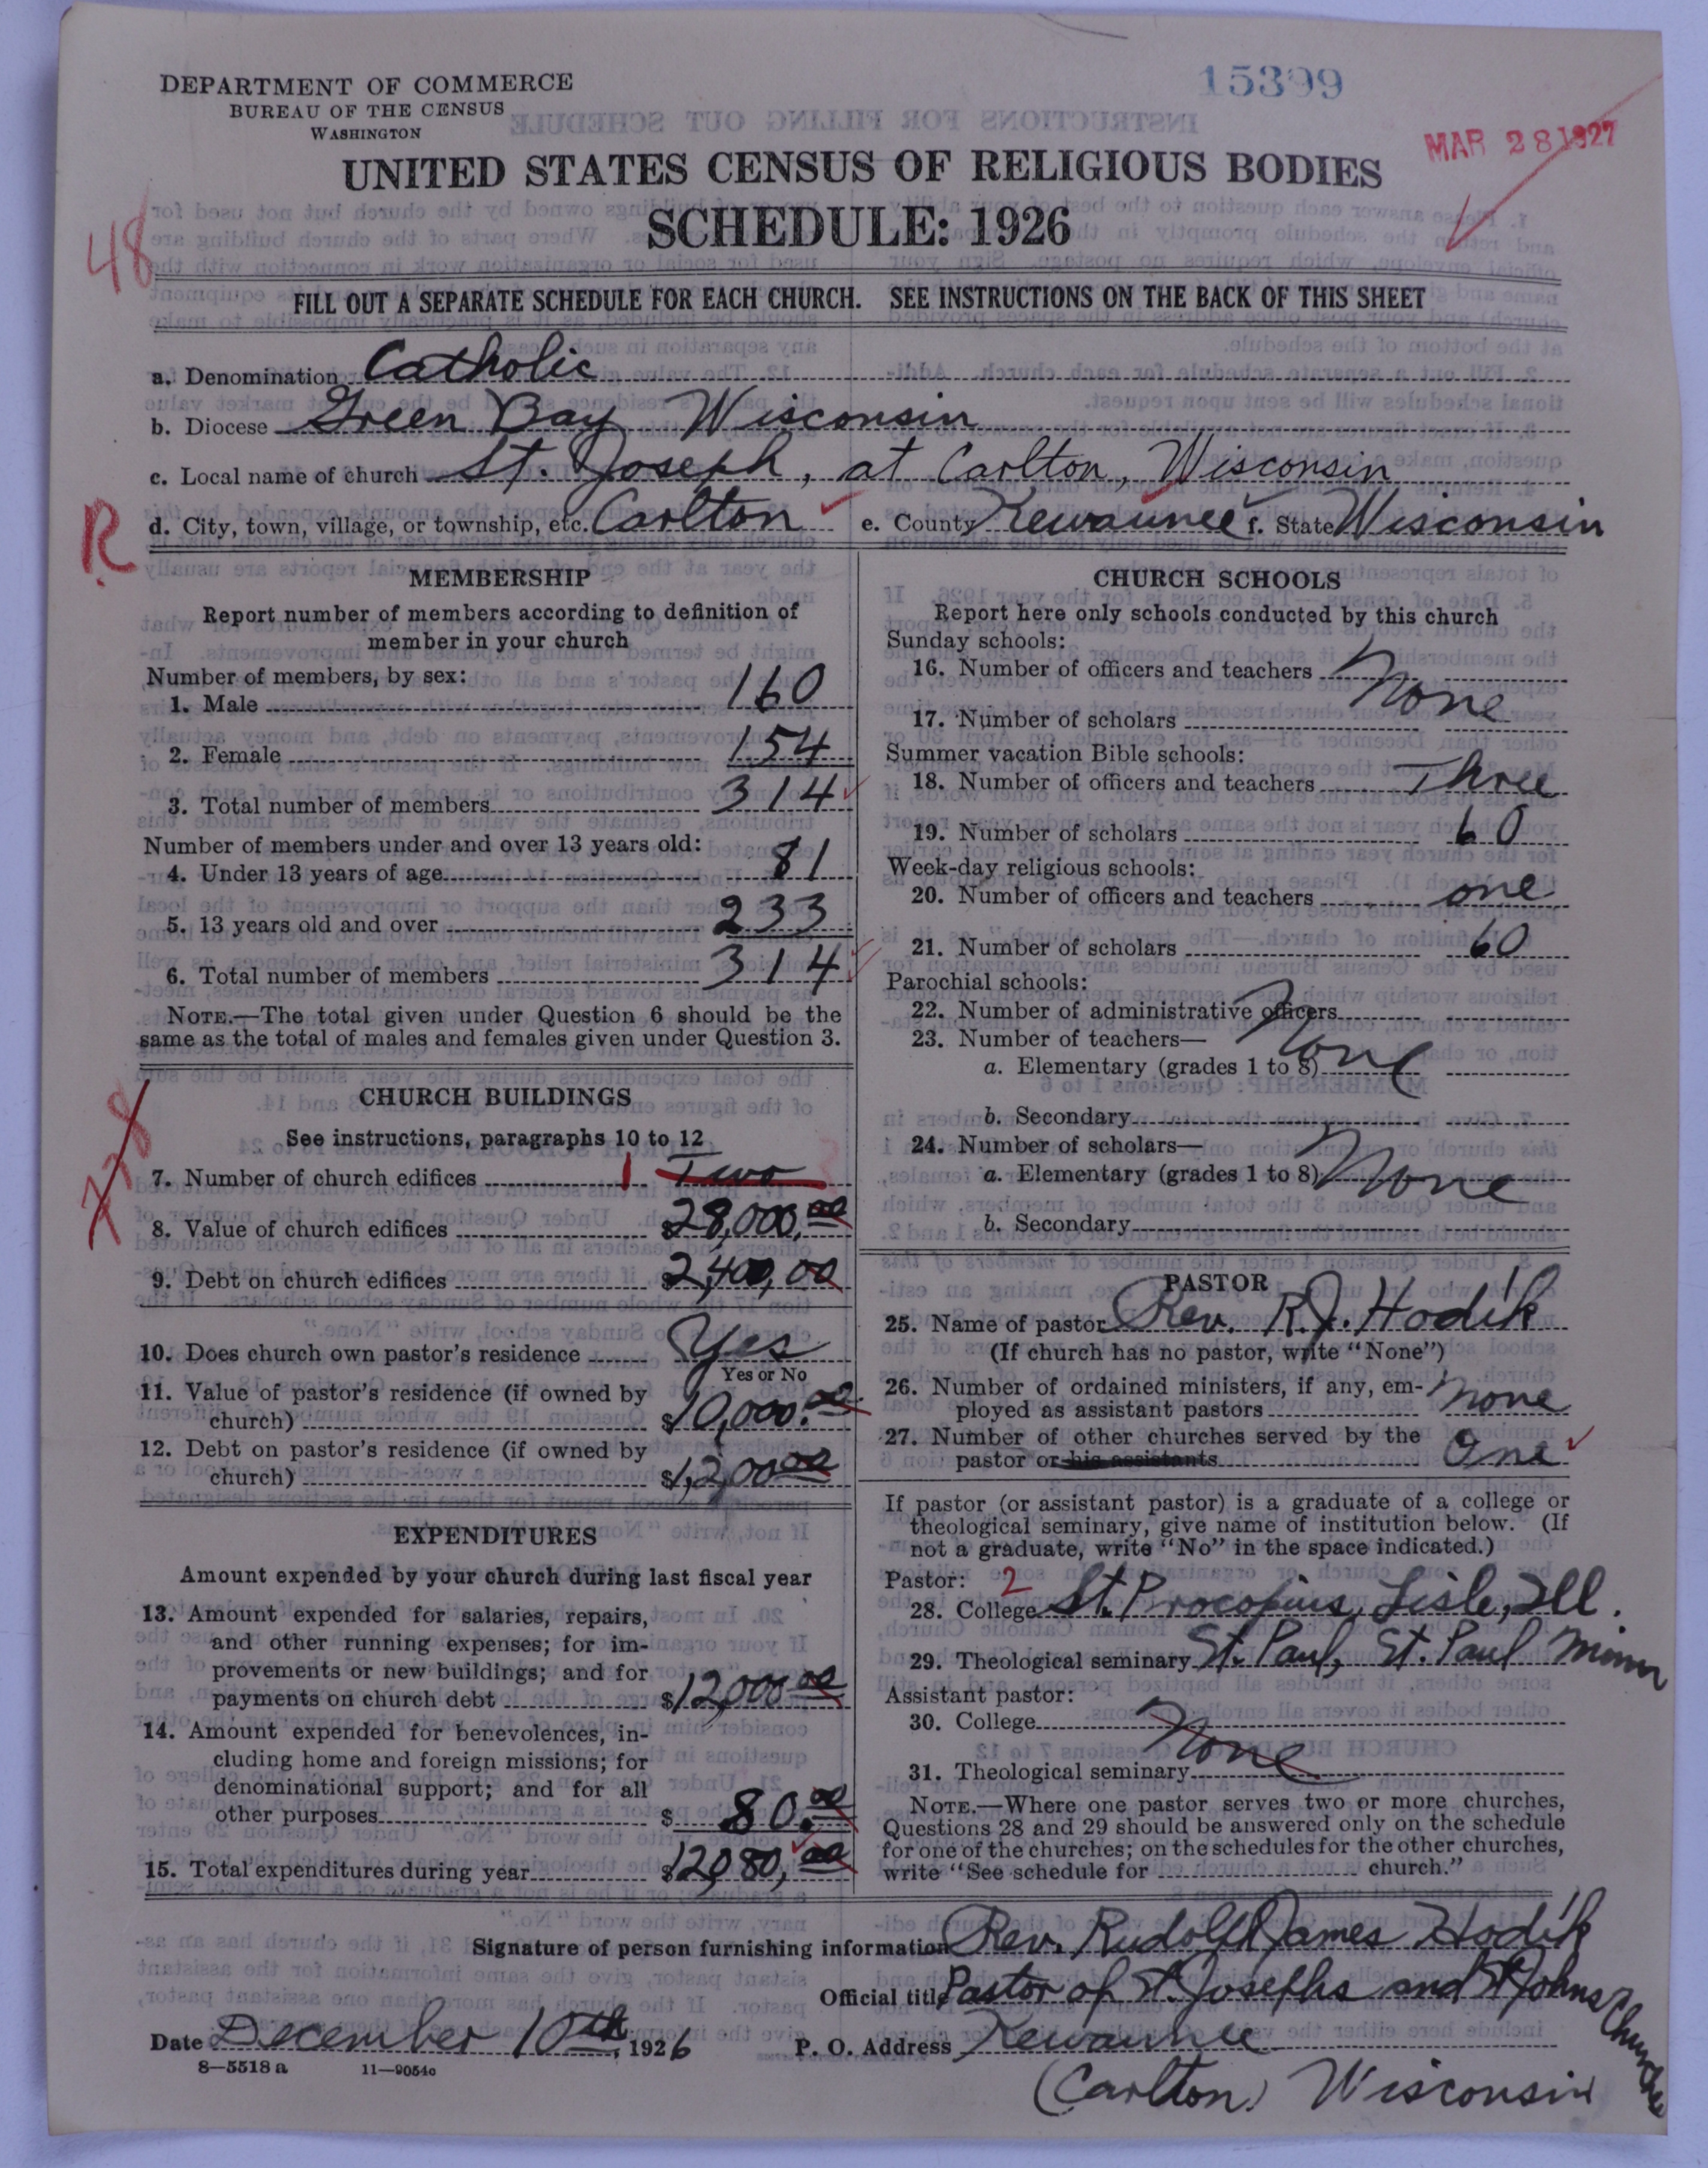 DEPARTMENT OF COMMERCE
BUREAU OF THE CENSUS
WASHINGTON
15399
MAR 28 1927
UNITED STATES CENSUS OF RELIGIOUS BODIES
SCHEDULE: 1926
48
FILL OUT A SEPARATE SCHEDULE FOR EACH CHURCH. SEE INSTRUCTIONS ON THE BACK OF THIS SHEET
a. Denomination Catholic
b. Diocese Green Bay Wisconsin
c. Local name of church St. Joseph, at Carlton, Wisconsin
R
d. City, town, village, or township, etc. Carlton e. County Kewaunee f. State Wisconsin
MEMBERSHIP
Report number of members according to definition of
member in your church
Number of members, by sex:
1. Male 160
2. Female 154
3. Total number of members 314
Number of members under and over 13 years old:
4. Under 13 years of age 81
5. 13 years old and over 233
6. Total number of members 314
NOTE.—The total given under Question 6 should be the
same as the total of males and females given under Question 3.
CHURCH BUILDINGS
See instructions, paragraphs 10 to 12
7. Number of church edifices 1 Two
8. Value of church edifices $28,000.00
9. Debt on church edifices $2,400,00
10. Does church own pastor's residence Yes
Yes or No
11. Value of pastor's residence (if owned by
church) $10,000.00
12. Debt on pastor's residence (if owned by
church) $1,20000
EXPENDITURES
Amount expended by your church during last fiscal year
13. Amount expended for salaries, repairs,
and other running expenses; for im-
provements or new buildings; and for
payments on church debt $12,000.00
14. Amount expended for benevolences, in-
cluding home and foreign missions; for
denominational support; and for all
other purposes $ 80.00
15. Total expenditures during year $12,080,00
CHURCH SCHOOLS
Report here only schools conducted by this church
Sunday schools:
16. Number of officers and teachers None
17. Number of scholars
Summer vacation Bible schools:
18. Number of officers and teachers Three
19. Number of scholars 60
Week-day religious schools:
20. Number of officers and teachers one
21. Number of scholars 60
Parochial schools:
22. Number of administrative officers
23. Number of teachers— None
a. Elementary (grades 1 to 8)
b. Secondary
24. Number of scholars—
a. Elementary (grades 1 to 8) None
b. Secondary
PASTOR
25. Name of pastor Rev. R.J. Hodik
(If church has no pastor, write "None")
26. Number of ordained ministers, if any, em-
ployed as assistant pastors none
27. Number of other churches served by the
pastor or his assistants One
If pastor (or assistant pastor) is a graduate of a college or
theological seminary, give name of institution below. (If
not a graduate, write "No" in the space indicated.)
Pastor: 2
28. College St. Procopius, Lisle, Ill.
29. Theological seminary St. Paul, St. Paul Minn
Assistant pastor:
30. College None
31. Theological seminary
NOTE.—Where one pastor serves two or more churches,
Questions 28 and 29 should be answered only on the schedule
for one of the churches; on the schedules for the other churches,
write "See schedule for church."
Signature of person furnishing information Rev. Rudolf James Hodik
Official title Pastor of St. Josephs and St Johns Churches
Date December 10th, 1926 P. O. Address Kewaunee
8—5518 a 11—9054c
(Carlton) Wisconsin